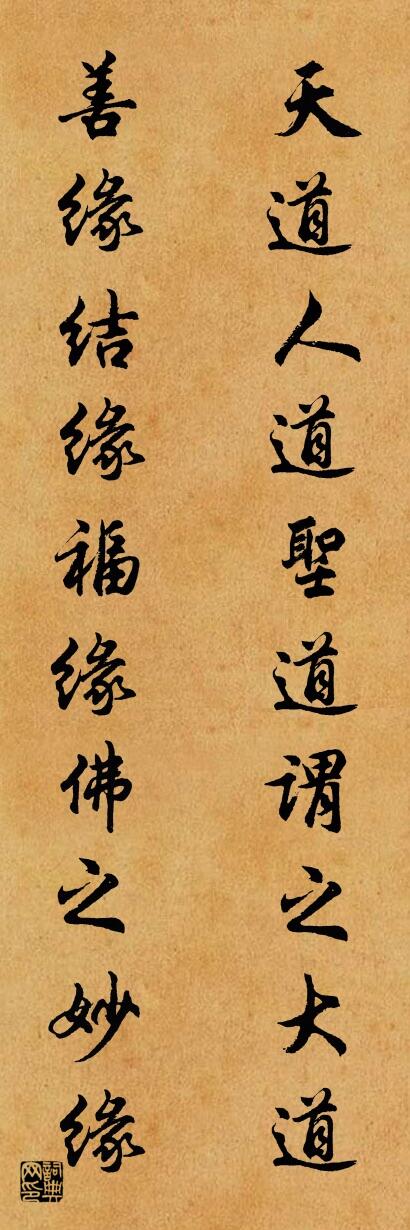 天道人道聖道謂之大道
善缘结缘福缘佛之妙缘